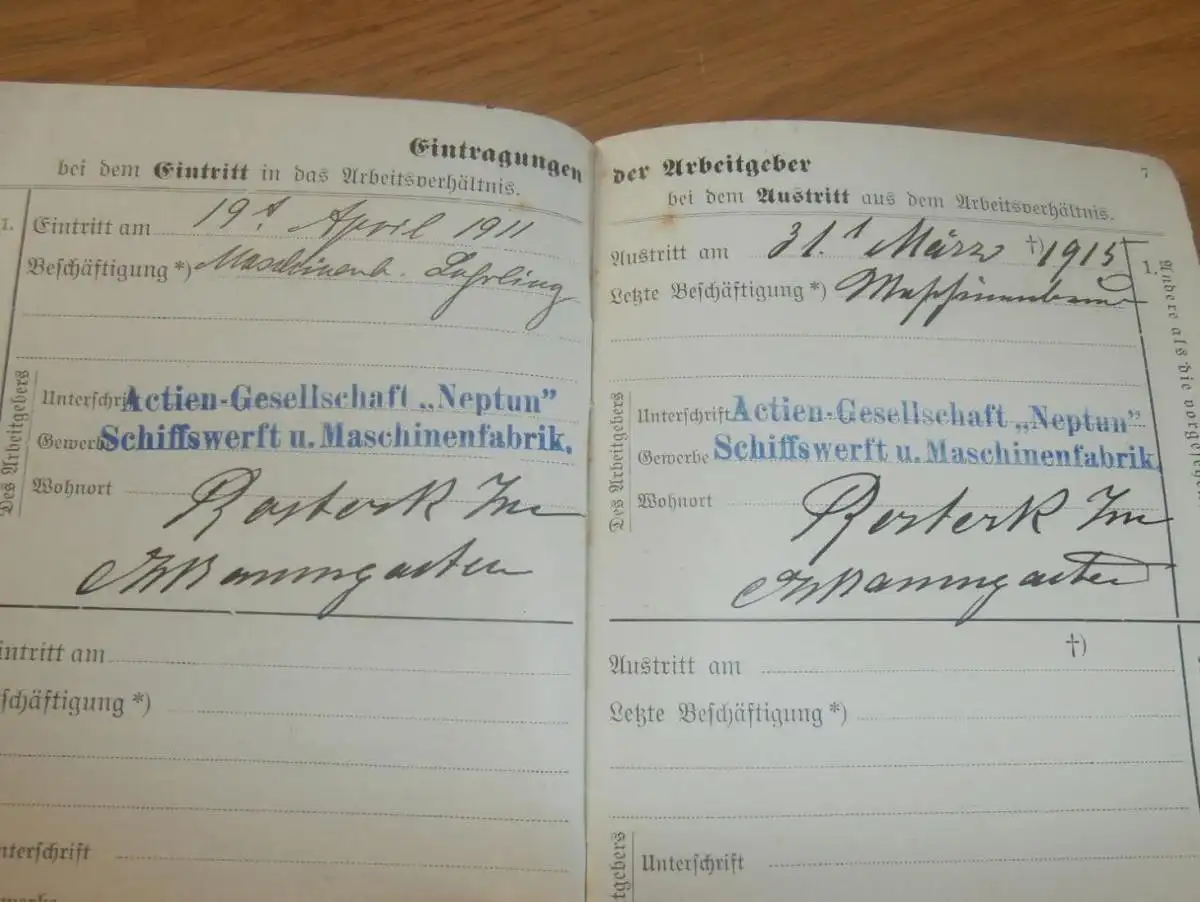 Eintragungen
bei dem Eintritt in das Arbeitsverhältnis.
1.
Eintritt am 19t April 1911
Beschäftigung *) Maschinenb. Lehrling
Des Arbeitgebers
Unterschrift Actien-Gesellschaft „Neptun”
Gewerbe Schiffswerft u. Maschinenfabrik.
Wohnort Rostock i/m
Baumgarten
Eintritt am
Beschäftigung *)
Unterschrift
der Arbeitgeber
7
bei dem Austritt aus dem Arbeitsverhältnis.
Austritt am 31.t März †) 1915
Letzte Beschäftigung *) Maschinenbau
1.
Des Arbeitgebers
Unterschrift Actien-Gesellschaft „Neptun”
Gewerbe Schiffswerft u. Maschinenfabrik.
Wohnort Rostock i/m
Baumgarten
Andere als die
Austritt am †)
Letzte Beschäftigung *)
Unterschrift